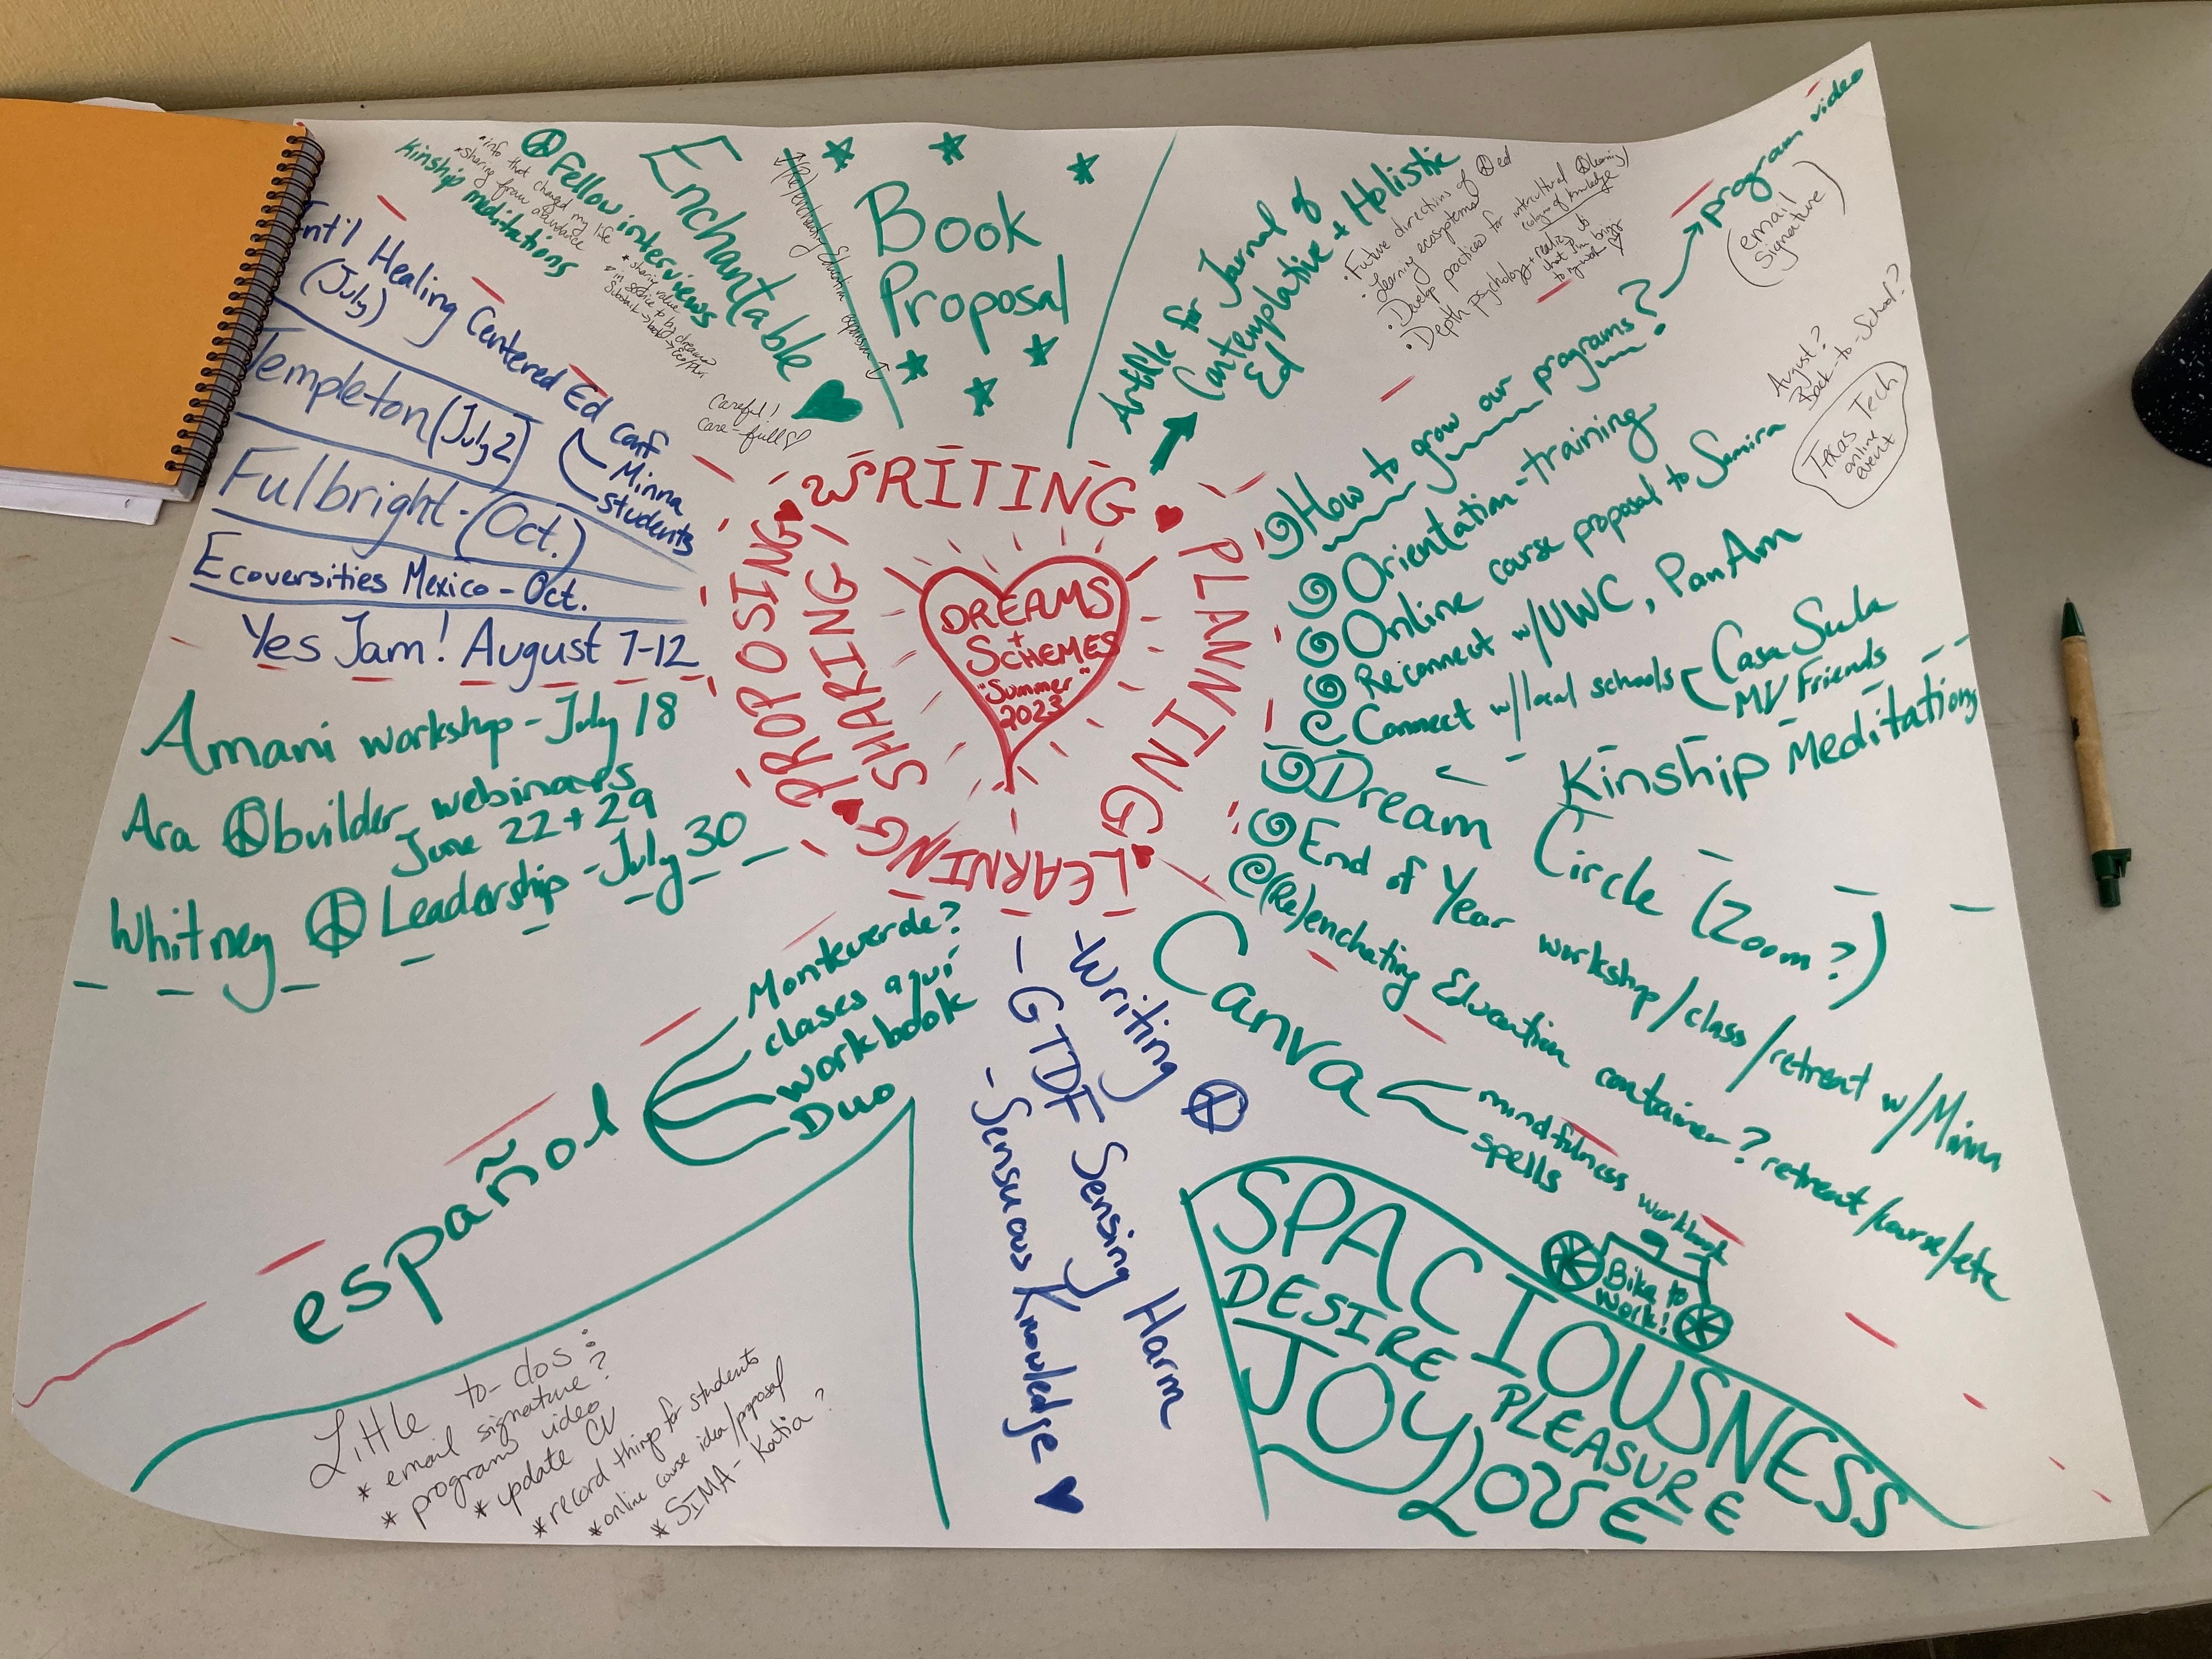 DREAMS
+
SCHEMES
"Summer"
2023
WRITING
PLANNING
LEARNING
PROPOSING/
SHARING
Kinship meditations
*info that changed my life
*sharing from abundance
Fellow interviews
*sharing value
Enchantable
(Re)enchanting Education
Careful!
Care-full
Book
Proposal
Article for Journal of
Contemplative + Holistic
Ed
•Future directions of ed
•Learning ecosystems
•Develop practices for intercultural learning/
ecology of knowledge
•Depth psychology
How to grow our programs?
program video
(email
signature)
August?
Back-to-School?
Texas Tech
online
event
Orientation-training
Online course proposal to Samira
Reconnect w/UWC, PanAm
Connect w/local schools
Casa Sula
MV Friends
Kinship Meditations
Dream Circle (Zoom?)
End of Year workshop/class/retreat w/Minna
(Re)enchating Education container? retreat/course/etc
Canva
mindfulness workbook
spells
Bike to
Work!
SPACIOUSNESS
DESIRE PLEASURE
JOY LOVE
-Writing
-GTDF Sensing Harm
-Sensuous Knowledge
español
Monteverde?
clases aquí
workbook
Duo
Little to-dos:
* email signature?
* program video
* update CV
* record thing for students
* online course idea/proposal
* SIMA - Katia?
Int'l Healing Centered Ed Conf
(July)
Minna
students
Templeton (July 2)
Fulbright - (Oct.)
Ecoversities Mexico - Oct.
Yes Jam! August 7-12
Amani workshop - July 18
Ara builder webinars
June 22 + 29
Whitney Leadership - July 30